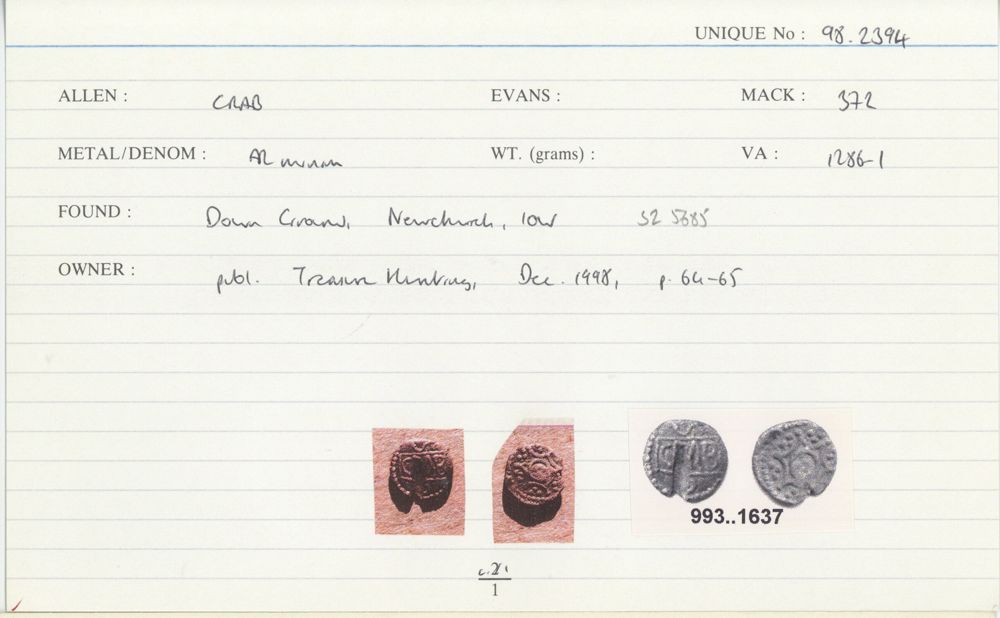 UNIQUE No : 98.2394
ALLEN : CRAB EVANS : MACK : 372
METAL/DENOM : AR minim WT. (grams) : VA : 1286-1
FOUND : Down Ground, Newchurch, IOW SZ 5685
OWNER : publ. Treasure Hunting, Dec. 1998, p. 64-65
CRAB CRAB
993..1637
c.2/1
1